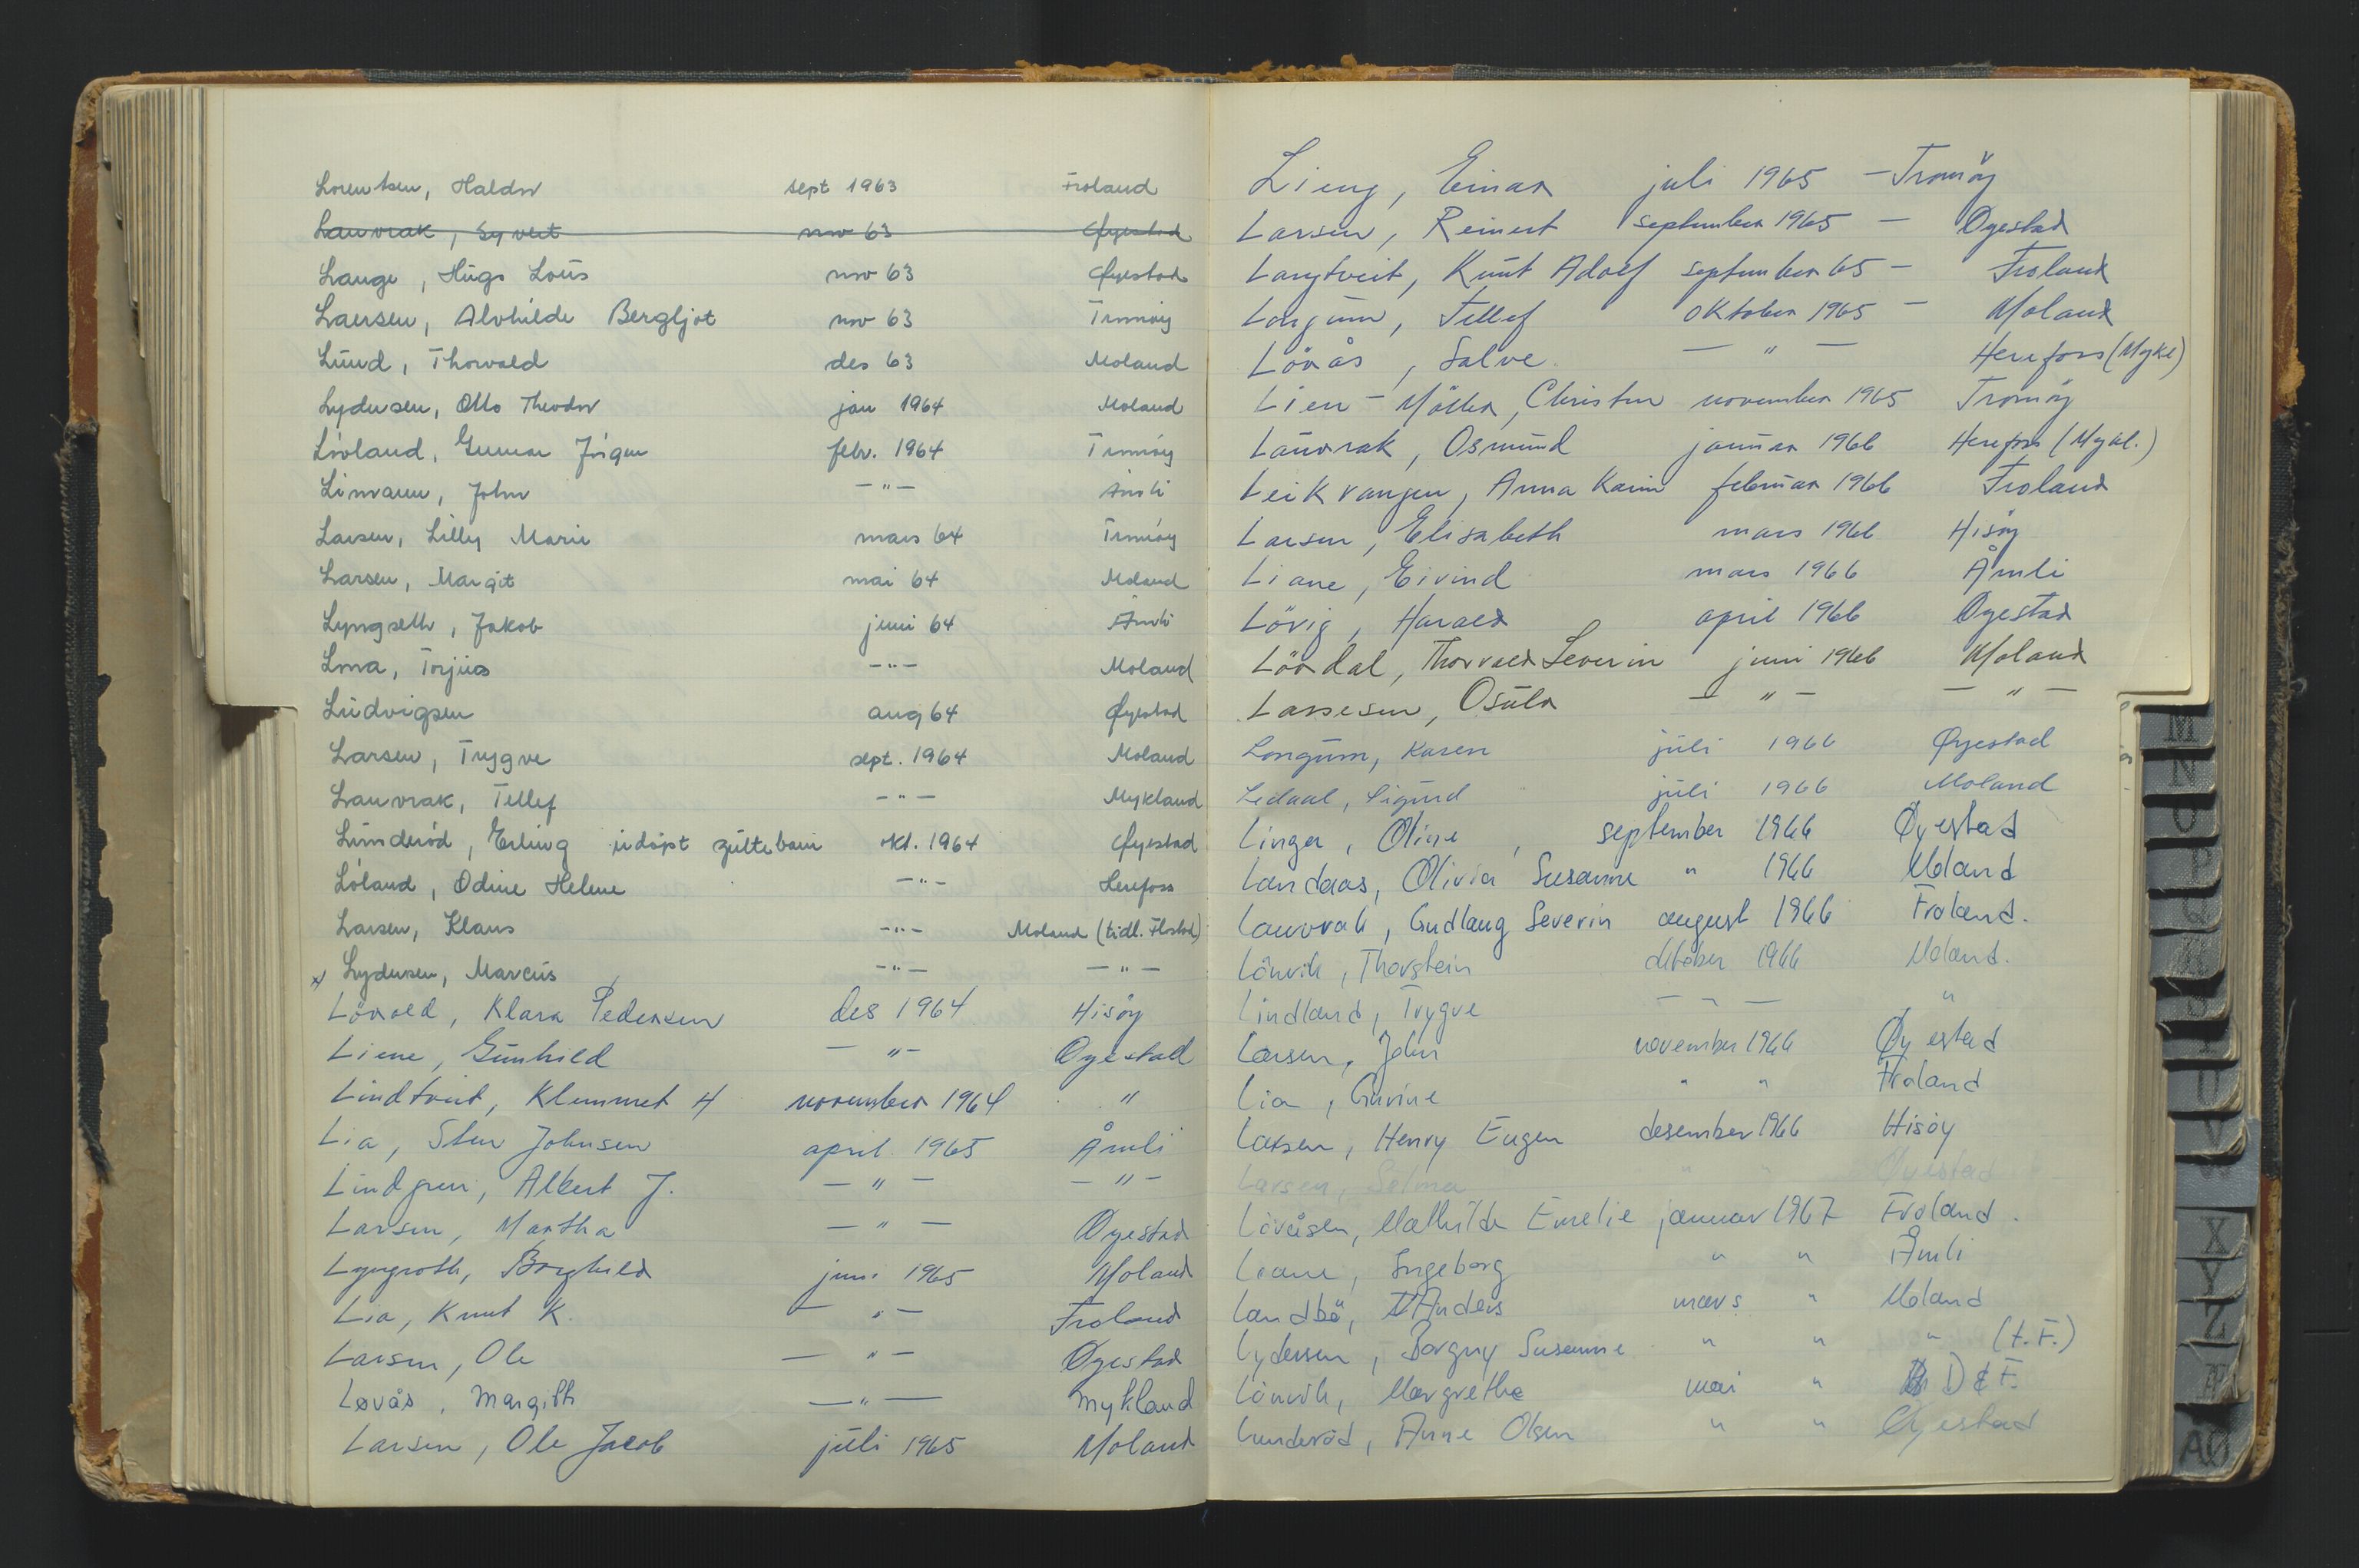 Lorentsen, Haldor sept 1963 Froland
Lauvrak, Syvert nov 63 Øyestad
Lange, Hugo Louis nov 63 Øyestad
Laersen, Alvhilde Bergljot nov 63 Tromöy
Lund, Thorvald des 63 Moland
Lydersen, Otto Theodor jan 1964 Moland
Lövland, Gunnar Jörgen febr. 1964 Tromöy
Limann, John —"— Åmli
Larsen, Lilly Marie mars 64 Tromöy
Larsen, Margit mai 64 Moland
Lyngseth, Jakob juni 64 Åmli
Torjus —"— Moland
Ludvigsen aug 64 Øyestad
Larsen, Trygve sept. 1964 Moland
Lauvrak, Tellef —"— Mykland
Lunderöd, Erling udöpt guttebarn okt. 1964 Øyestad
Löland, Odine Helene —"— Herefoss
Larsen, Klaus —"— Moland (tidl. Flostad)
x Lydersen, Marcus —"— —"—
Lövold, Klara Pedersen des 1964 Hisöy
Liene, Gunhild —"— Öyestad
Lindtveit, Klemmet H november 1964 "
Lia, Sten Johnsen april 1965 Åmli
Lindgren, Albert J. —"— —"—
Larsen, Martha —"— Öyestad
Lyngroth, Borghild juni 1965 Moland
Lia, Knut K. —"— Froland
Larsen, Ole —"— Öyestad
Løvås, Margith —"— Mykland
Larsen, Ole Jacob juli 1965 Moland
Lieng, Einar juli 1965 — Tromöy
Larsen, Reinert september 1965 — Öyestad
Langtveit, Knut Adolf september 65 — Froland
Longum, Tellef oktober 1965 — Moland
Lövås, Salve —"— Herefoss (Mykl)
Lien-Möller, Christen november 1965 Tromöy
Lauvrak, Osmund januar 1966 Herefoss (Mykl.)
Leikvangen, Anna Karin februar 1966 Froland
Larsen, Elisabeth mars 1966 Hisöy
Liane, Eivind mars 1966 Åmli
Lövig, Harald april 1966 Öyestad
Lövdal, Thorvald Severin juni 1966 Moland
Lassesen, Osula —"— —"—
Longum, Karen juli 1966 Øyestad
Ledaal, Sigurd juli 1966 Moland
Linga, Oline, september 1966 Øyestad
Landaas, Olivia Susanne " 1966 Moland
Lauvrak, Gudlaug Severin august 1966 Froland.
Lönvik, Thorstein oktober 1966 Moland.
Lindland, Trygve — " — "
Larsen, John november 1966 Øyestad
Lia, Gurine " " Froland
Larsen, Henry Eugen desember 1966 Hisöy
Larsen, Selma " " Øyestad
Löväsen, Mathilde Emelie januar 1967 Froland.
Liane, Ingeborg " " Åmli
Landbö, Anders mars " Moland
Lydersen, Borgny Susanne " " " (t. F.)
Lönvik, Margrethe mai " D & F.
Lunderöd, Anne Olsen " " Øyestad
M
N
O
P
S
T
U
V
X
Y
Z
Æ
AØ